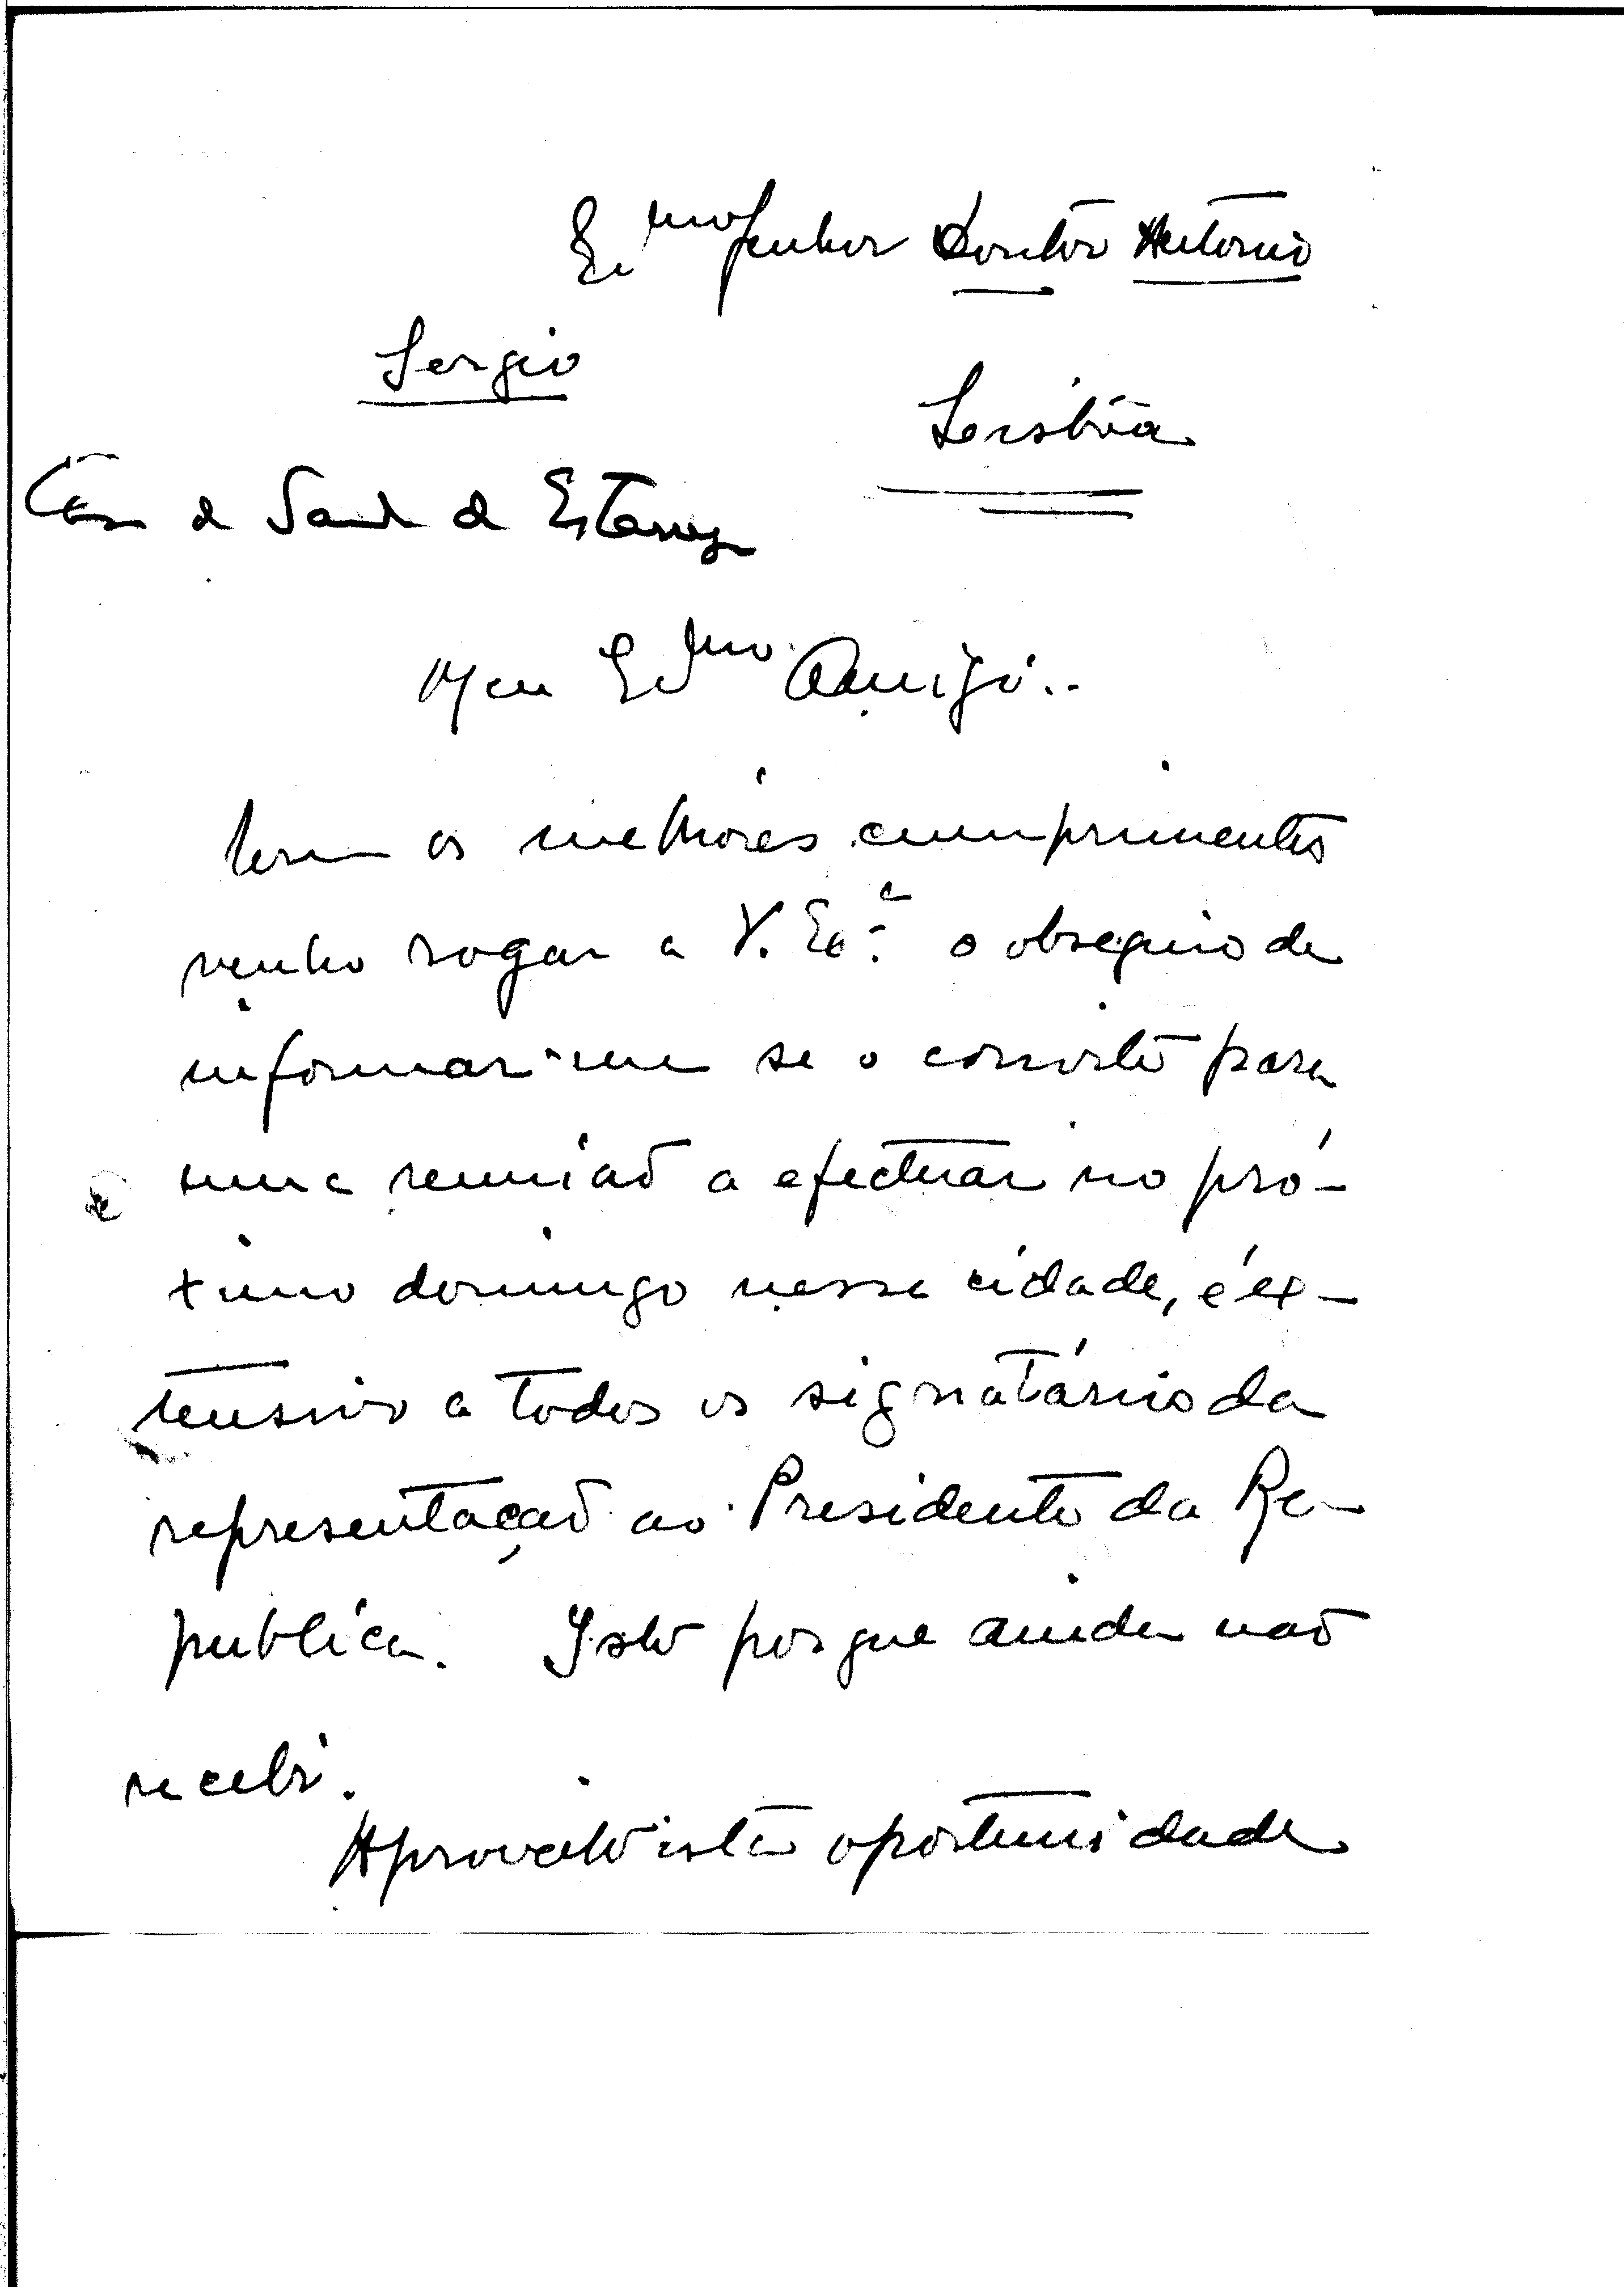 Ex.mo Senhor Doutor António
Sergio
Lisbôa
Casa de Saude de Estarreja
Meu Ex.mo Amigo..
Com os melhores cumprimentos
venho rogar a V. Ex.ª o obsequio de
informar-me se o convite para
uma reunião a efectuar no pró-
ximo domingo nessa cidade, é ex-
tensivo a todos os signatários da
representação ao Presidente da Re-
publica. Isto porque ainda não
recebi.
Aproveito esta oportunidade